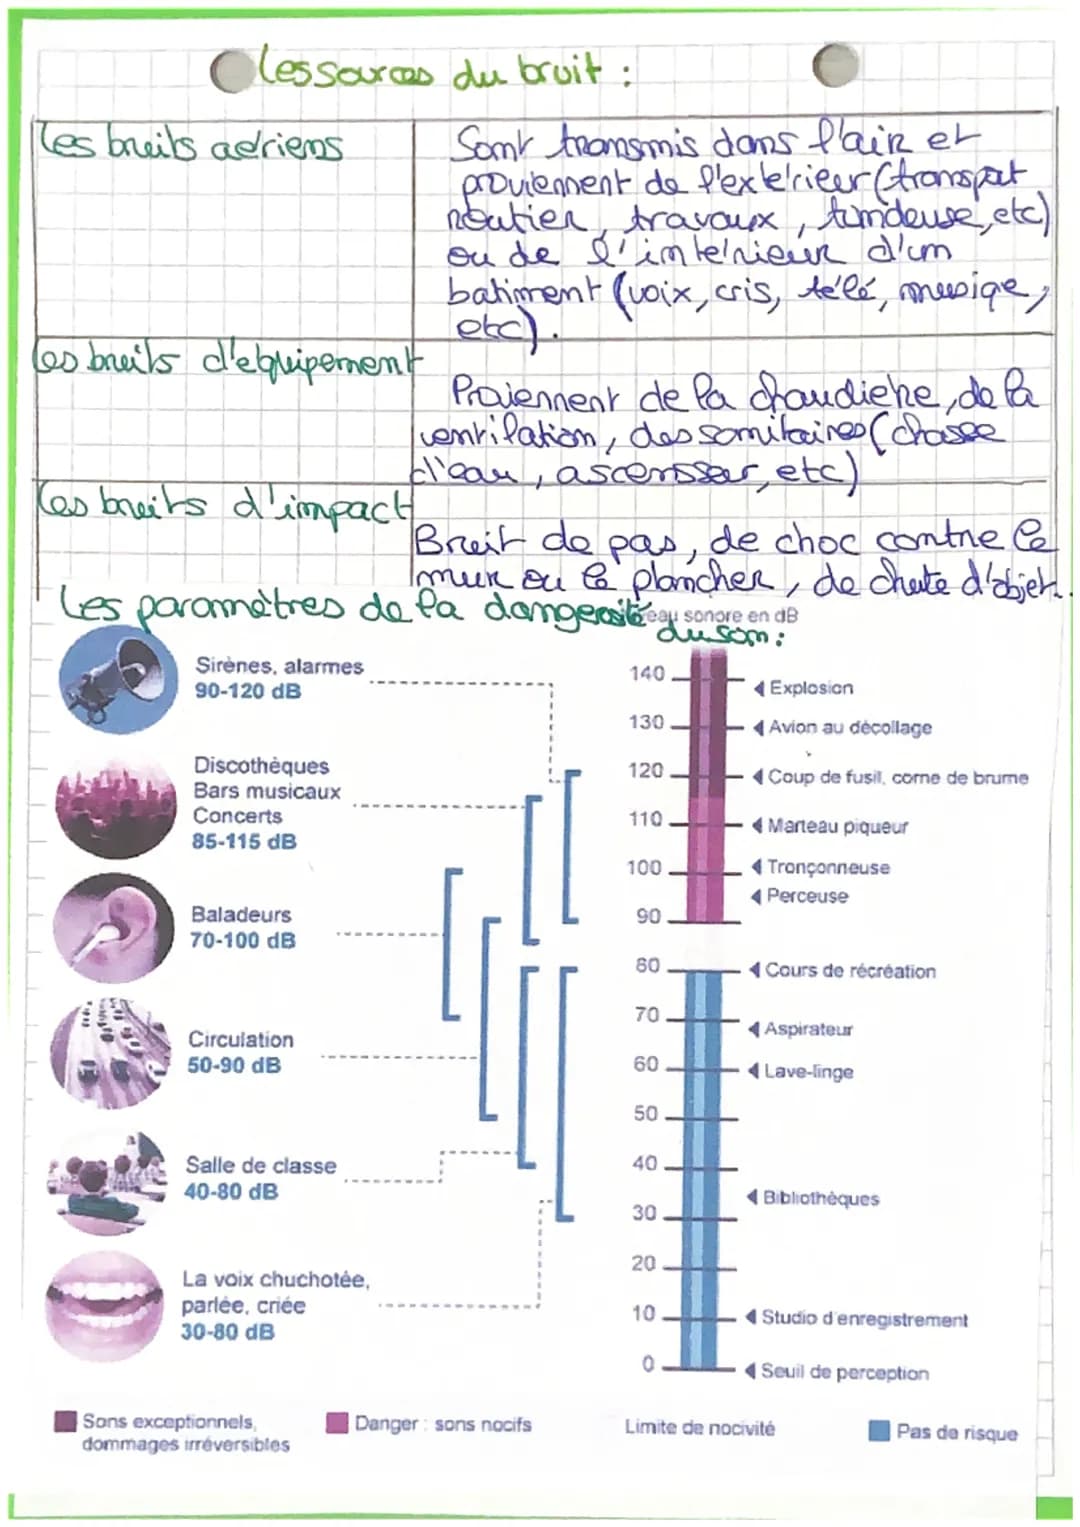 Les sources du bruit :
Les bruits aériens
Sont transmis dans l'air et
proviennent de l'extérieur (transpat
routier, travaux, tundeuse, etc)
ou de l'intérieur d'un
batiment (voix, cris, télé, musiqe,
etc).
Les bruits d'equipement
Proiennent de la chaudière, de la
ventilation, des sanitaires (chasse
d'eau, ascensseur, etc)
Les bruits d'impact
Bruit de pas, de choc contre le
mur ou le plancher, de chute d'objet.
Les paramètres de la dangerosité
du son :
eau sonore en dB
Sirènes, alarmes
90-120 dB
Discothèques
Bars musicaux
Concerts
85-115 dB
Baladeurs
70-100 dB
Circulation
50-90 dB
Salle de classe
40-80 dB
La voix chuchotée,
parlée, criée
30-80 dB
140
Explosion
130
Avion au décollage
120
Coup de fusil, corne de brume
110
Marteau piqueur
100
Tronçonneuse
Perceuse
90
80
Cours de récréation
70
Aspirateur
60
Lave-linge
50
40
Bibliothèques
30
20
10
Studio d'enregistrement
0
Seuil de perception
Sons exceptionnels,
dommages irréversibles
Danger : sons nocifs
Limite de nocivité
Pas de risque